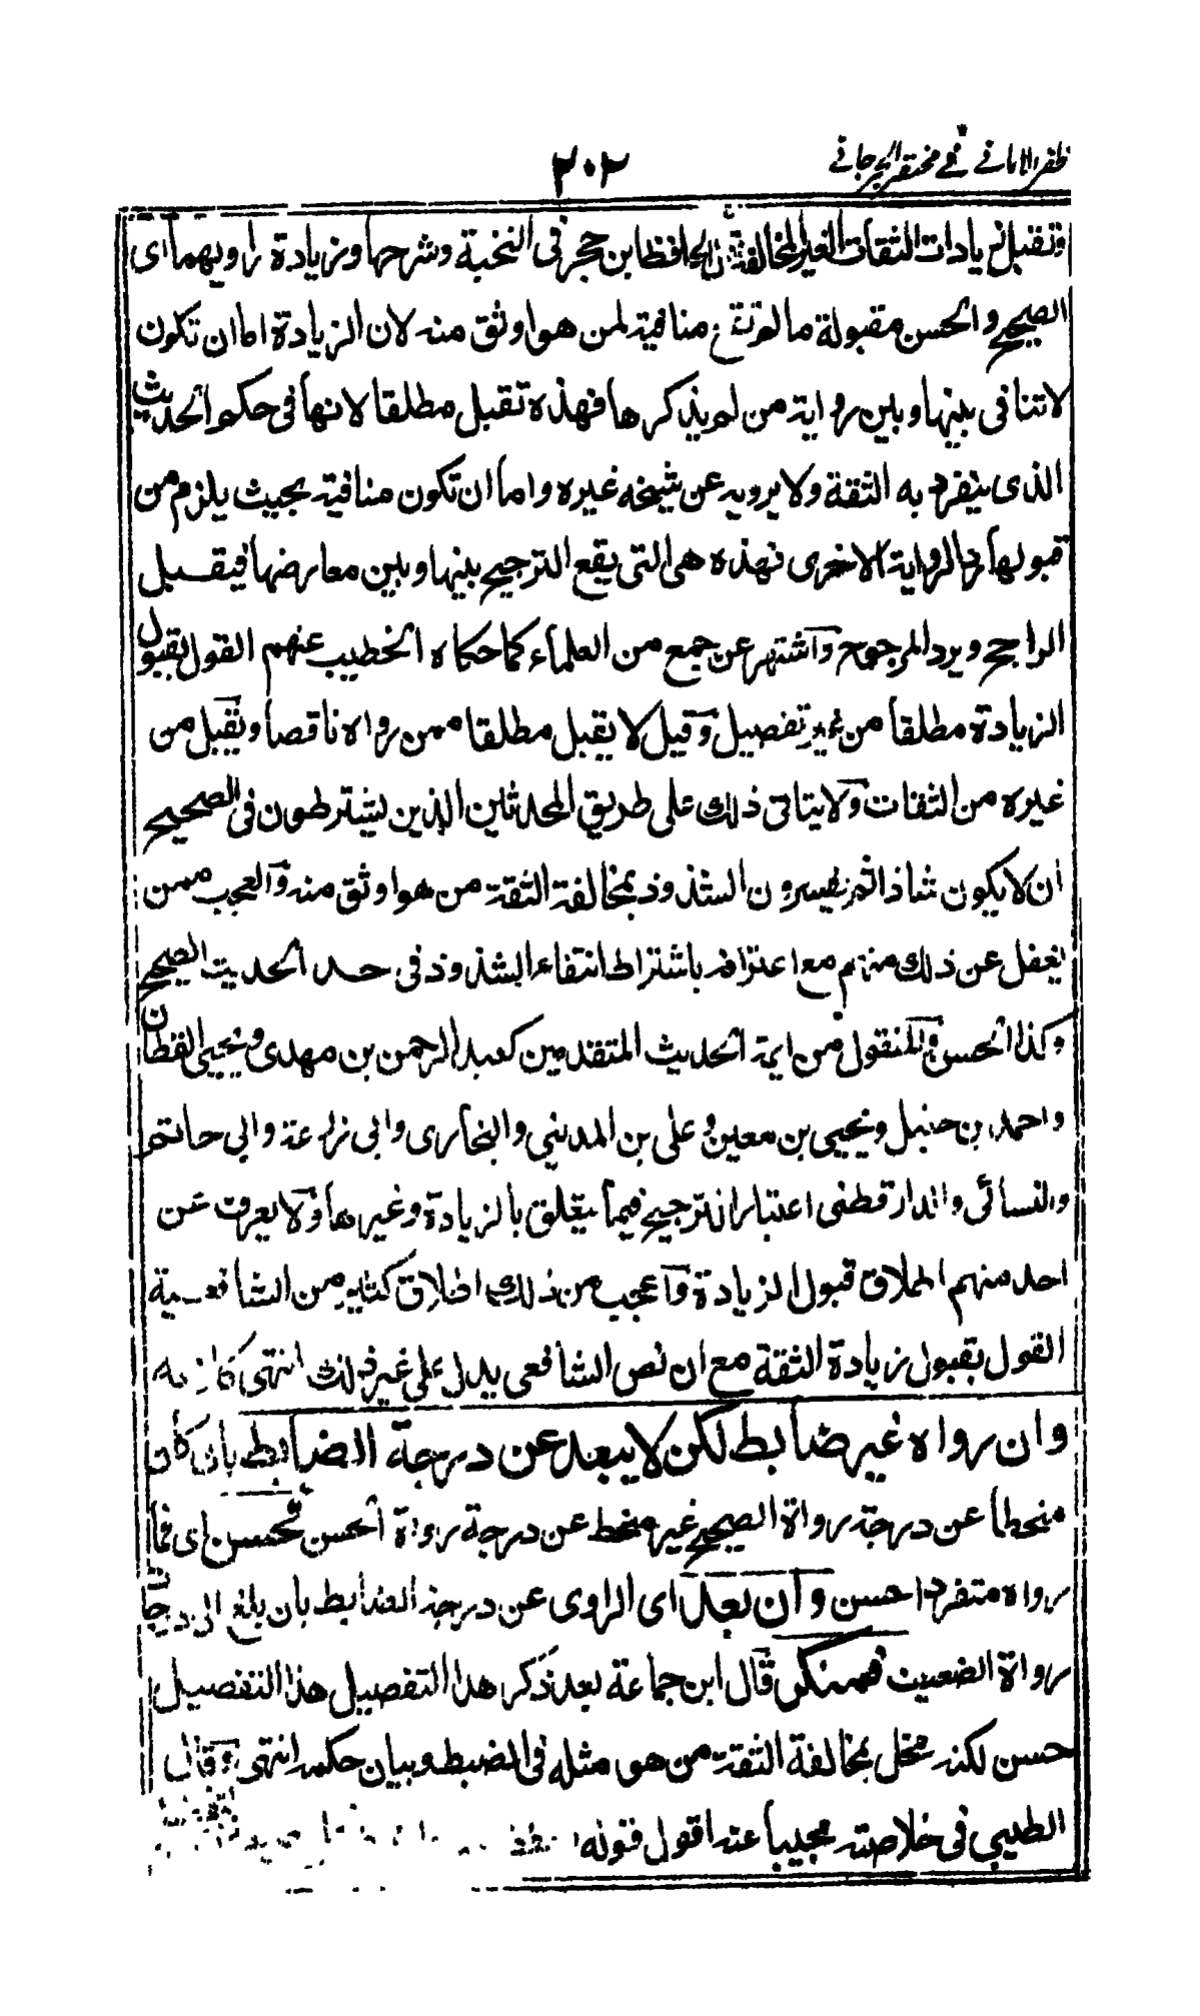 ظفر الامانی فی مختصر الجرجانی
٢٠٢
وتقبل زیادات الثقات الغیر المخالفة قال الحافظ ابن حجر فی النخبة وشرحها وزیادة راویهما ای
الصحیح والحسن مقبولة ما لم تقع منافیة لمن هو اوثق منه لان الزیادة اما ان تکون
لا تنافی بینها وبین روایة من لم یذکرها فهذه تقبل مطلقا لانها فی حکم الحدیث
الذی ینفرد به الثقة ولا یرویه عن شیخه غیره واما ان تکون منافیة بحیث یلزم من
قبولها رد الروایة الاخری فهذه هی التی یقع الترجیح بینها وبین معارضها فیقبل
الراجح ویرد المرجوح وآشتهر عن جمع من العلماء کما حکاه الخطیب عنهم القول بقبول
الزیادة مطلقا من غیر تفصیل وقیل لا یقبل مطلقا ممن رواه ناقصا ویقبل من
غیره من الثقات ولا یتاتی ذلك علی طریق المحدثین الذین یشترطون فی الصحیح
ان لا یکون شاذا ثم یفسرون الشذوذ بمخالفة الثقة من هو اوثق منه والعجب ممن
یغفل عن ذلك منهم مع اعترافه باشتراط انتفاء الشذوذ فی حد الحدیث الصحیح
وکذا الحسن والمنقول من ایمة الحدیث المتقدمین کعبد الرحمن بن مهدی ویحیی القطان
واحمد بن حنبل ویحیی بن معین وعلی بن المدینی والبخاری وابی زرعة وابی حاتم
والنسائی والدارقطنی اعتبار الترجیح فیما یتعلق بالزیادة وغیرها ولا یعرف عن
احد منهم اطلاق قبول الزیادة وآعجب من ذلك اطلاق کثیر من الشافعیة
القول بقبول زیادة الثقة مع ان نص الشافعی یدل علی غیر ذلك انتهی کلامه
وان رواه غیر ضابط لکن لا یبعد عن درجة الضابط بان کان
منحطا عن درجة رواة الصحیح غیر منحط عن درجة رواة الحسن فحسن ای فما
رواه متفردا حسن وآن بعد ای الراوی عن درجة الضابط بان بلغ الی درجات
رواة الضعیف فمنکر قال ابن جماعة بعد ذکر هذا التفصیل هذا التفصیل
حسن لکنه مخل بمخالفة الثقة من هو مثله فی الضبط وبیان حکمه انتهی وقال
الطیبی فی خلاصته مجیبا عنه اقول قوله